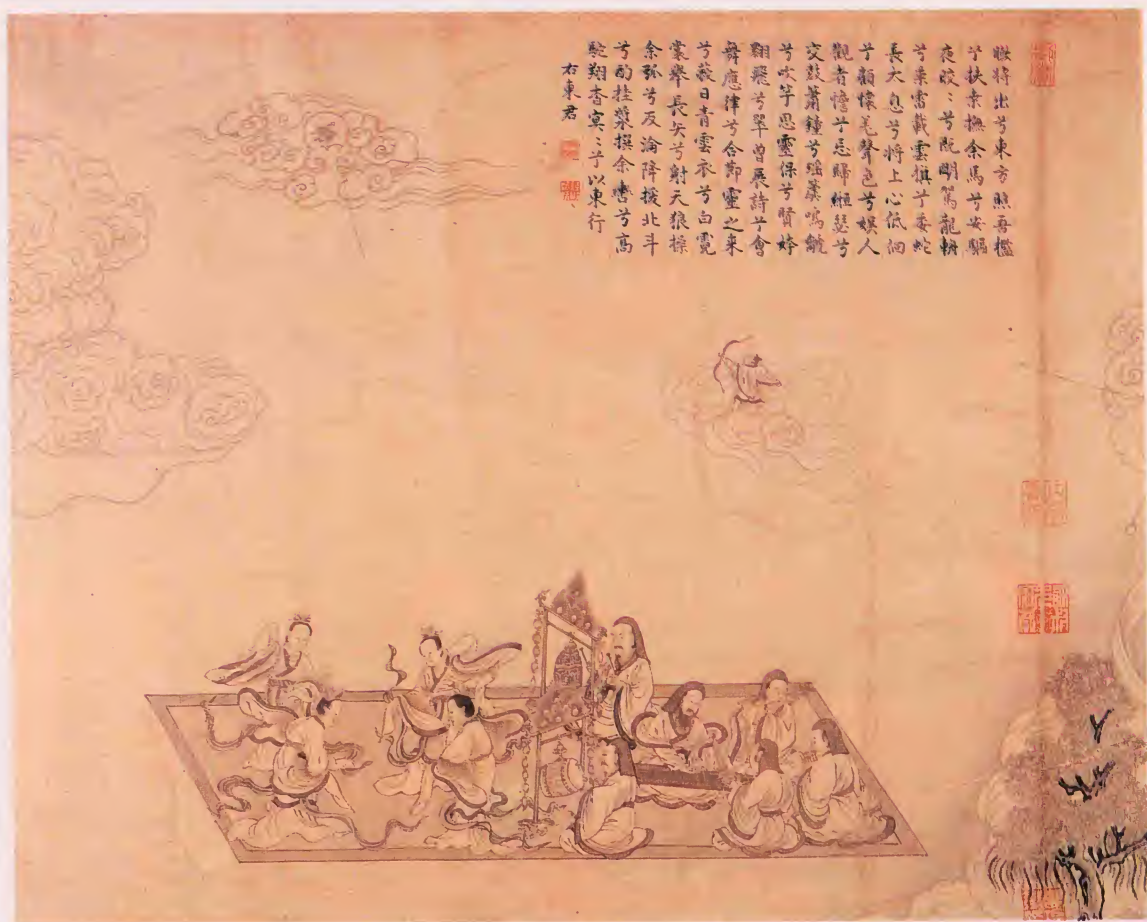 暾将出兮東方照吾檻
兮扶桑撫余馬兮安驅
夜皎〻兮既明駕龍輈
兮乗雷載雲旗兮委蛇
長大息兮将上心低佪
兮顧懷羌聲色兮娛人
觀者憺兮忘歸緪瑟兮
交鼓簫鐘兮瑶簴鳴䶵
兮吹竽思靈保兮賢姱
翾飛兮翠曾展詩兮會
舞應律兮合節靈之来
兮蔽日青雲衣兮白霓
裳舉長矢兮射天狼操
余弧兮反淪降援北斗
兮酌桂漿撰余轡兮高
駝翔杳冥〻兮以東行
右東君